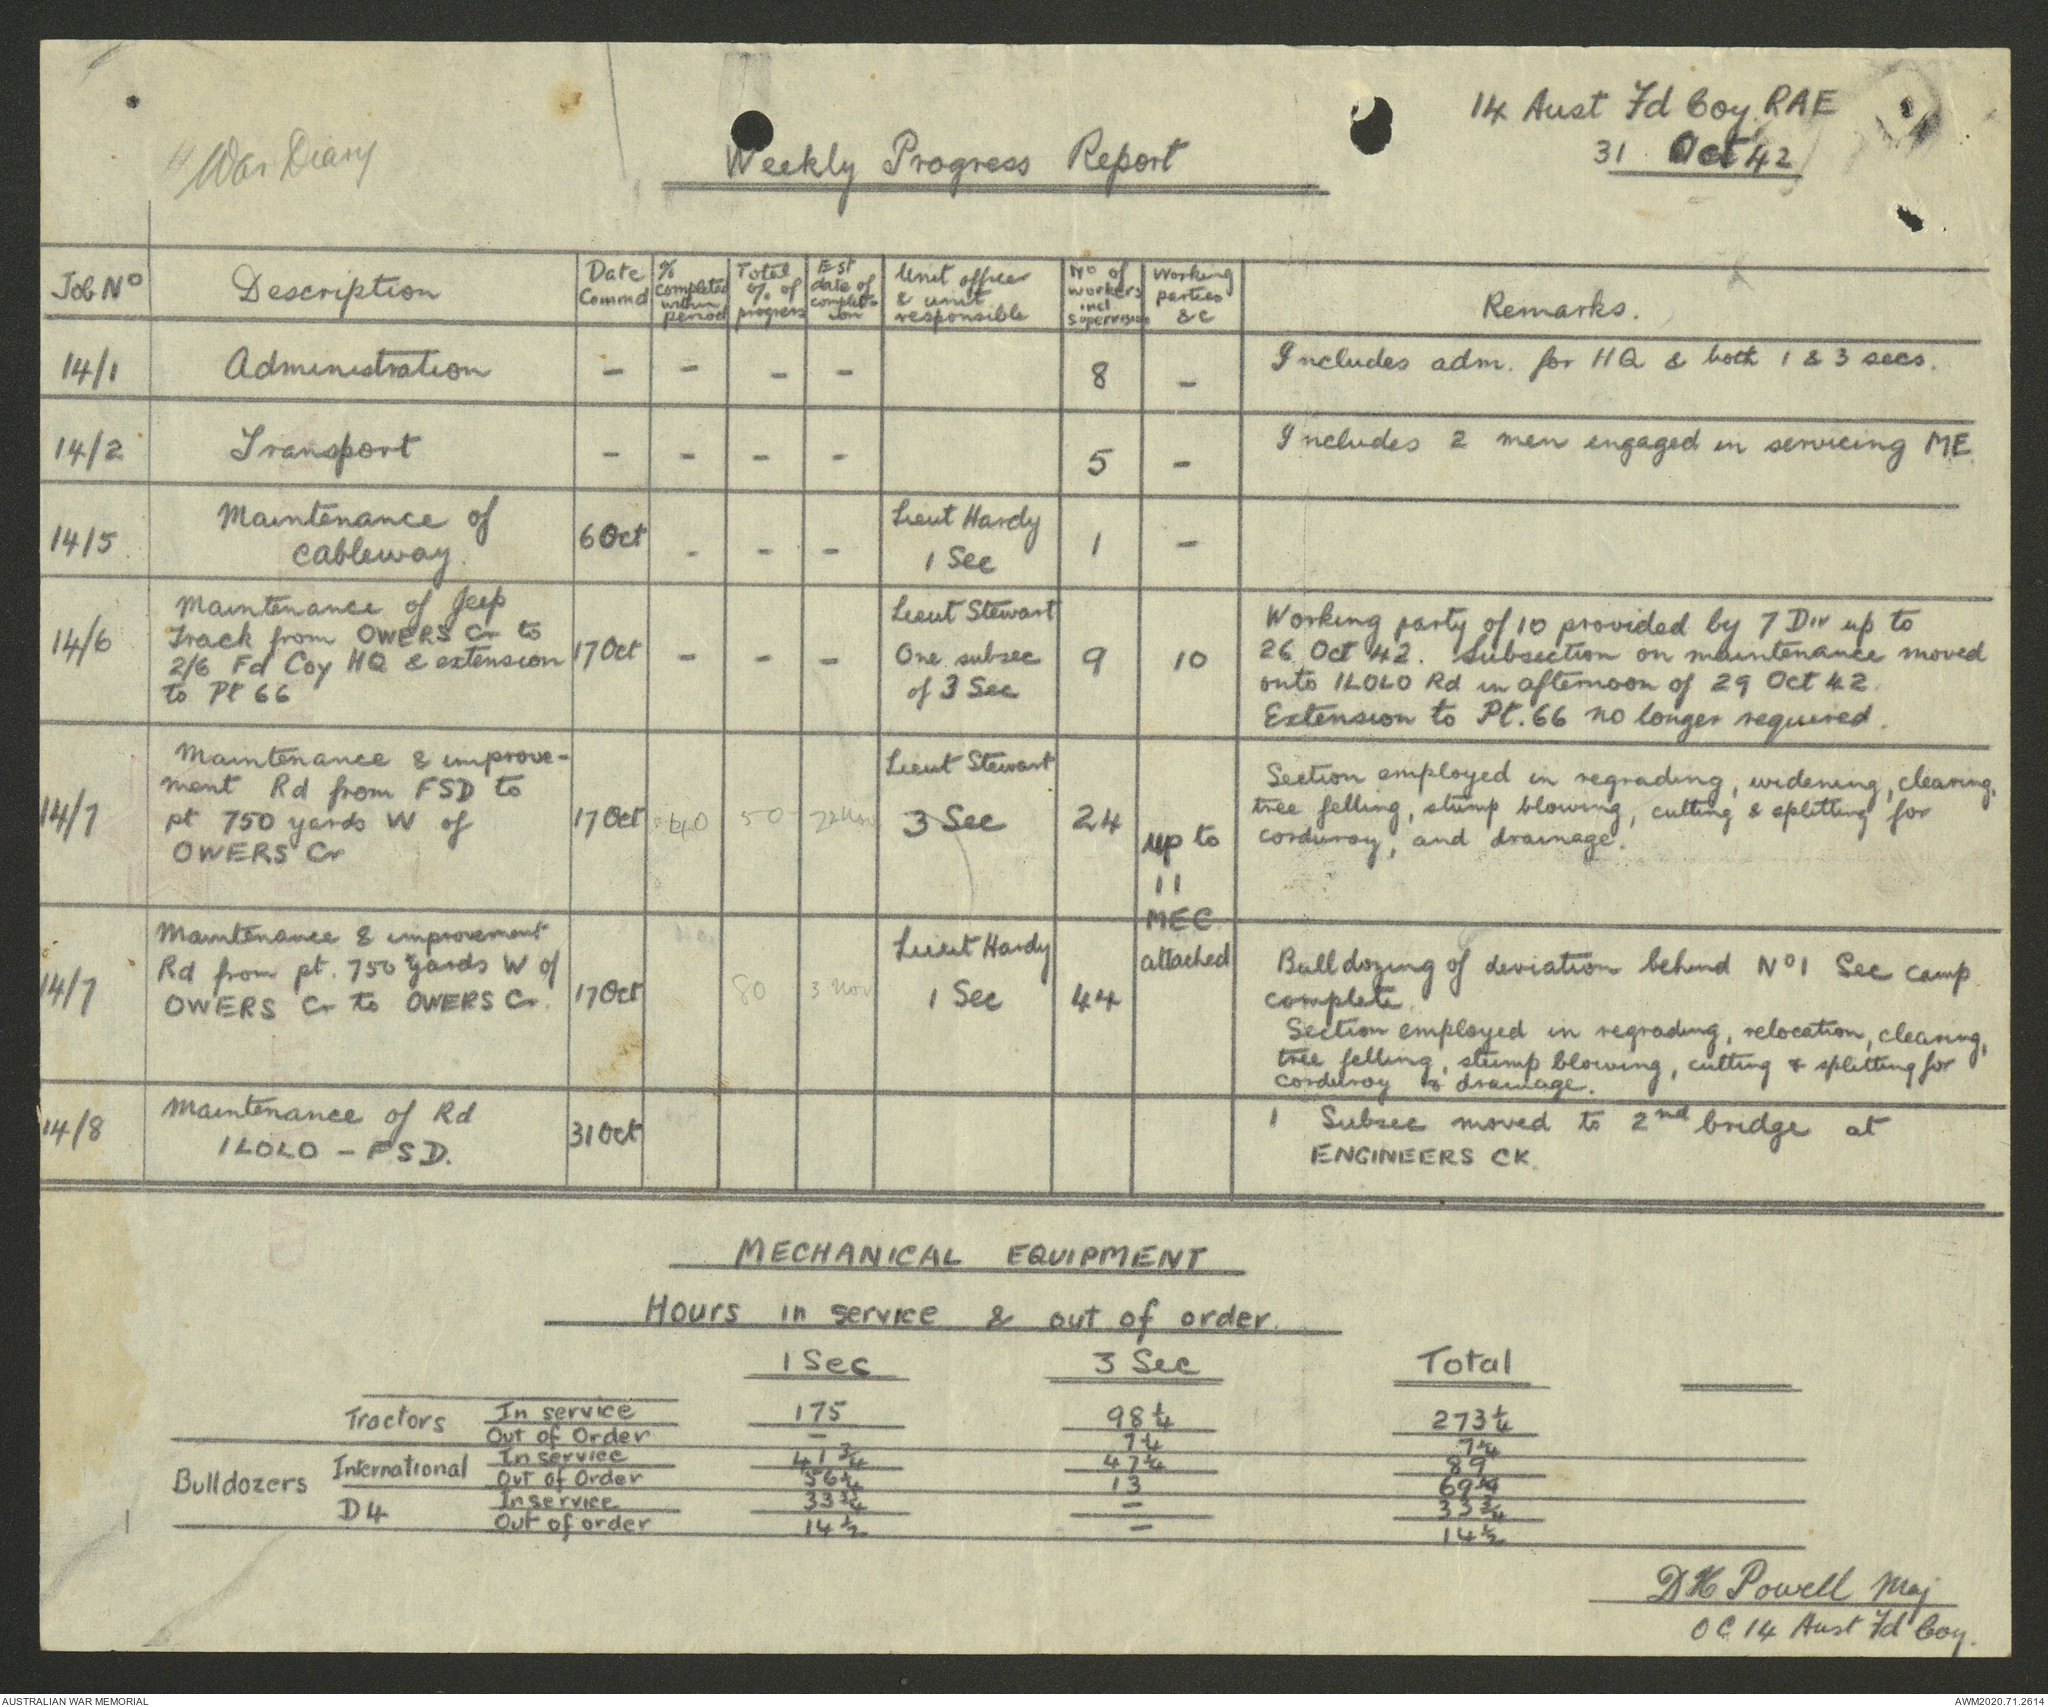 "War Diary
Weekly Progress Report
14 Aust Fd Coy RAE
31 Oct 42
Job No
Description
Date Commd
% completed within period
Total % of progress
Est date of complet-ion
Unit officer & unit responsible
No of workers incl. supervision
Working parties &c
Remarks.
14/1
Administration
-
-
-
-
8
-
Includes adm. for HQ & both 1 & 3 secs.
14/2
Transport
-
-
-
-
5
-
Includes 2 men engaged in servicing ME
14/5
Maintenance of
cableway.
6 Oct
-
-
-
Lieut Hardy
1 Sec
1
-
14/6
Maintenance of Jeep
Track from OWERS Cr to
2/6 Fd Coy HQ & extension
to Pt 66
17 Oct
-
-
-
Lieut Stewart
One subsec
of 3 Sec
9
10
Working party of 10 provided by 7 Div up to
26 Oct 42. Subsection on maintenance moved
onto ILOLO Rd in afternoon of 29 Oct 42.
Extension to Pt. 66 no longer required.
14/7
Maintenance & improve-
ment Rd from FSD to
pt 750 yards W of
OWERS Cr
17 Oct
40
50
22 Nov
Lieut Stewart
3 Sec
24
up to
11
MEC
attached
Section employed in regrading, widening, clearing,
tree felling, stump blowing, cutting & splitting for
corduroy, and drainage.
14/7
Maintenance & improvement
Rd from pt. 750 yards W of
OWERS Cr to OWERS Cr.
17 Oct
80
3 Nov
Lieut Hardy
1 Sec
44
Bulldozing of deviation behind No 1 Sec camp
complete.
Section employed in regrading, relocation, clearing,
tree felling, stump blowing, cutting & splitting for
corduroy & drainage.
14/8
Maintenance of Rd
ILOLO - FSD.
31 Oct
1 Subsec moved to 2nd bridge at
ENGINEERS CK.
MECHANICAL EQUIPMENT
Hours in service & out of order.
1 Sec 3 Sec Total
Tractors In service 175 98 1/4 273 1/4
Out of Order - 7 1/4 7 1/4
Bulldozers International In service 41 3/4 47 1/4 89
Out of Order 56 1/4 13 69 1/4
D4 In service 33 3/4 - 33 3/4
Out of order 14 1/2 - 14 1/2
DH Powell Maj
OC 14 Aust Fd Coy.
AUSTRALIAN WAR MEMORIAL
AWM2020.71.2614